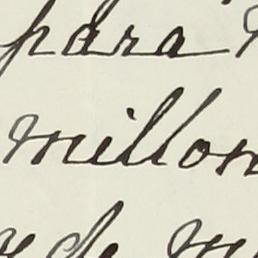 para
millon
de